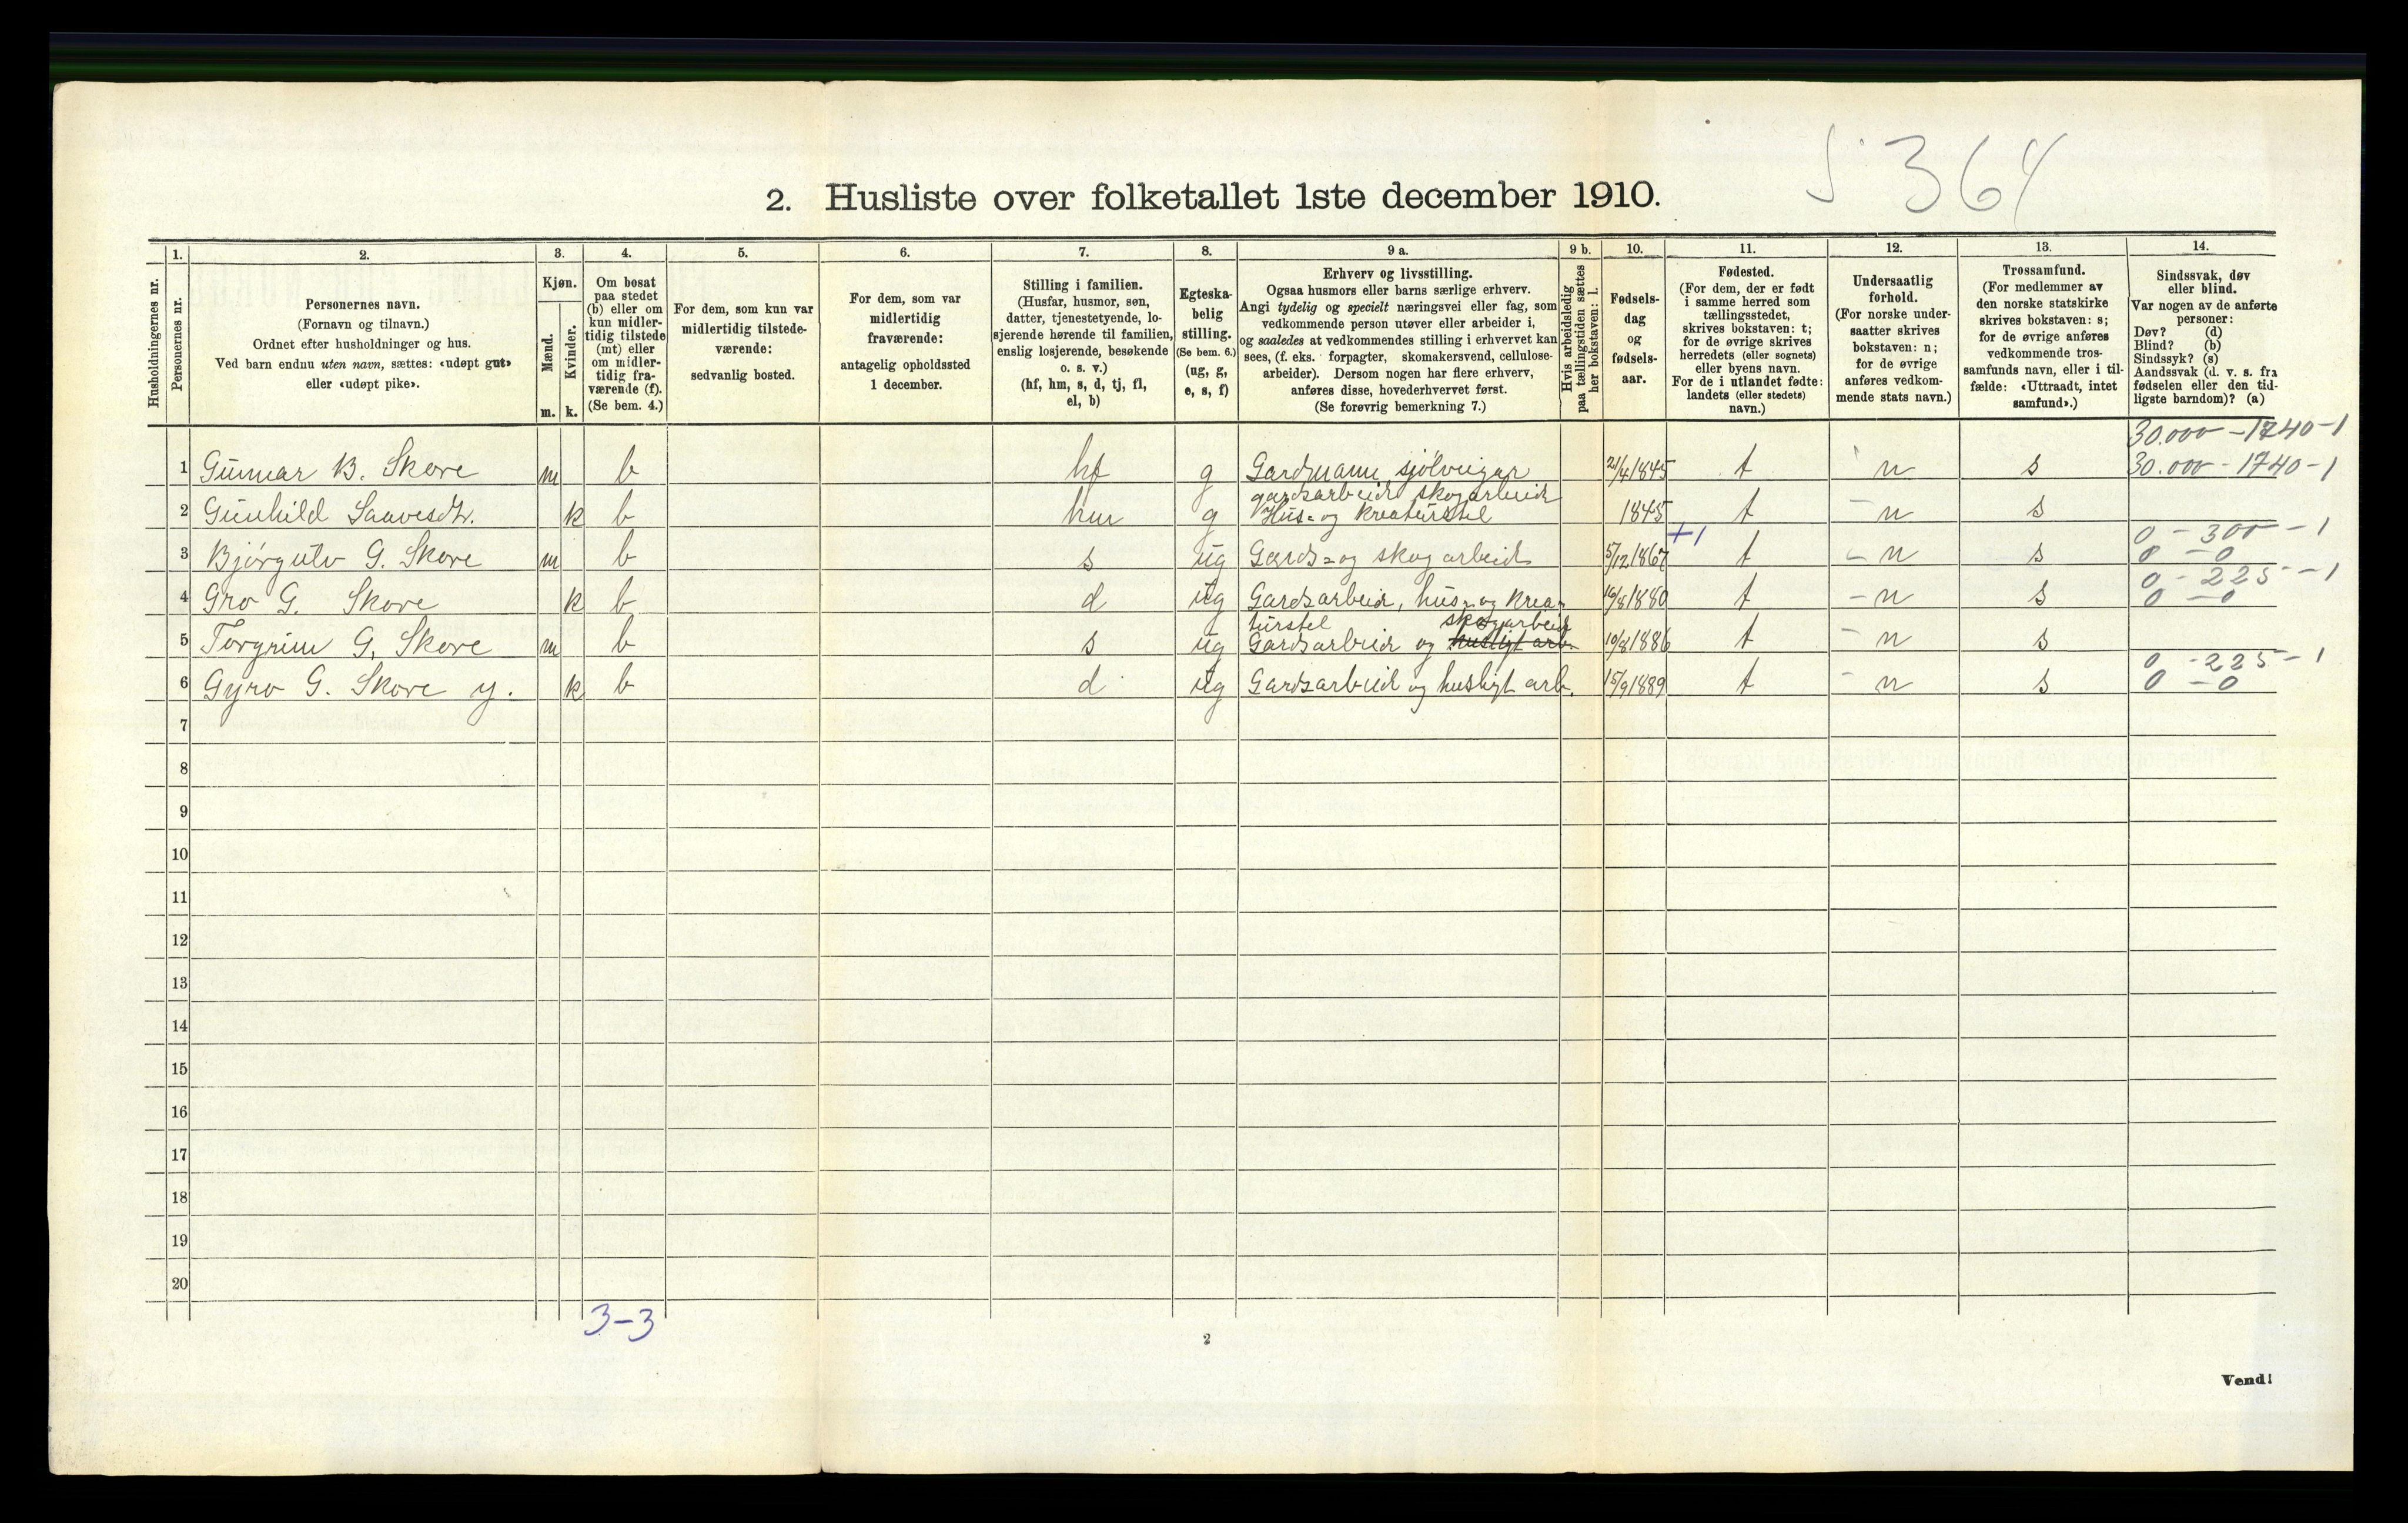 S 364
2. Husliste over folketallet 1ste december 1910.
Husholdningernes nr.
1. Personernes nr.
2.
Personernes navn.
(Fornavn og tilnavn.)
Ordnet efter husholdninger og hus.
Ved barn endnu uten navn, sættes: «udøpt gut»
eller «udøpt pike».
3.
Kjøn.
Mænd. Kvinder.
m. k.
4.
Om bosat
paa stedet
(b) eller om
kun midler-
tidig tilstede
(mt) eller
om midler-
tidig fra-
værende (f).
(Se bem. 4.)
5.
For dem, som kun var
midlertidig tilstede-
værende:
sedvanlig bosted.
6.
For dem, som var
midlertidig
fraværende:
antagelig opholdssted
1 december.
7.
Stilling i familien.
(Husfar, husmor, søn,
datter, tjenestetyende, lo-
sjerende hørende til familien,
enslig losjerende, besøkende
o. s. v.)
(hf, hm, s, d, tj, fl,
el, b)
8.
Egteska-
belig
stilling.
(Se bem. 6.)
(ug, g,
e, s, f)
9 a.
Erhverv og livsstilling.
Ogsaa husmors eller barns særlige erhverv.
Angi tydelig og specielt næringsvei eller fag, som
vedkommende person utøver eller arbeider i,
og saaledes at vedkommendes stilling i erhvervet kan
sees, (f. eks. forpagter, skomakersvend, cellulose-
arbeider). Dersom nogen har flere erhverv,
anføres disse, hovederhvervet først.
(Se forøvrig bemerkning 7.)
9 b.
Hvis arbeidsledig
paa tællingstiden sættes
her bokstaven: l.
10.
Fødsels-
dag
og
fødsels-
aar.
11.
Fødested.
(For dem, der er født
i samme herred som
tællingsstedet,
skrives bokstaven: t;
for de øvrige skrives
herredets (eller sognets)
eller byens navn.
For de i utlandet fødte:
landets (eller stedets)
navn.)
12.
Undersaatlig
forhold.
(For norske under-
saatter skrives
bokstaven: n;
for de øvrige
anføres vedkom-
mende stats navn.)
13.
Trossamfund.
(For medlemmer av
den norske statskirke
skrives bokstaven: s;
for de øvrige anføres
vedkommende tros-
samfunds navn, eller i til-
fælde: «Uttraadt, intet
samfund».)
14.
Sindssvak, døv
eller blind.
Var nogen av de anførte
personer:
Døv? (d)
Blind? (b)
Sindssyk? (s)
Aandssvak (d. v. s. fra
fødselen eller den tid-
ligste barndom)? (a)
30.000 - 1740 - 1
1 Gunnar B. Skore m b hf g Gardmann sjölveigar 21/4 1845 t n s 30.000 - 1740 - 1
gardsarbeid skogarbeid
2 Gunhild Saavesdtr. k b hm g Hus- og kreaturstel 1845 t n s
+1 0 - 300 - 1
3 Bjørgulv G. Skore m b s ug Gards- og skogarbeid 5/12 1867 t n s 0 - 0
0 - 225 - 1
4 Gro G. Skore k b d ug Gardsarbeid, hus- og krea- 16/8 1880 t n s 0 - 0
turstel skogarbeid
5 Torgrim G. Skore m b s ug Gardsarbeid og husligt arb. 10/8 1886 t n s
0 - 225 - 1
6 Gyro G. Skore y. k b d ug Gardsarbeid og husligt arb. 15/9 1889 t n s 0 - 0
7
8
9
10
11
12
13
14
15
16
17
18
19
20
3-3
2
Vend!